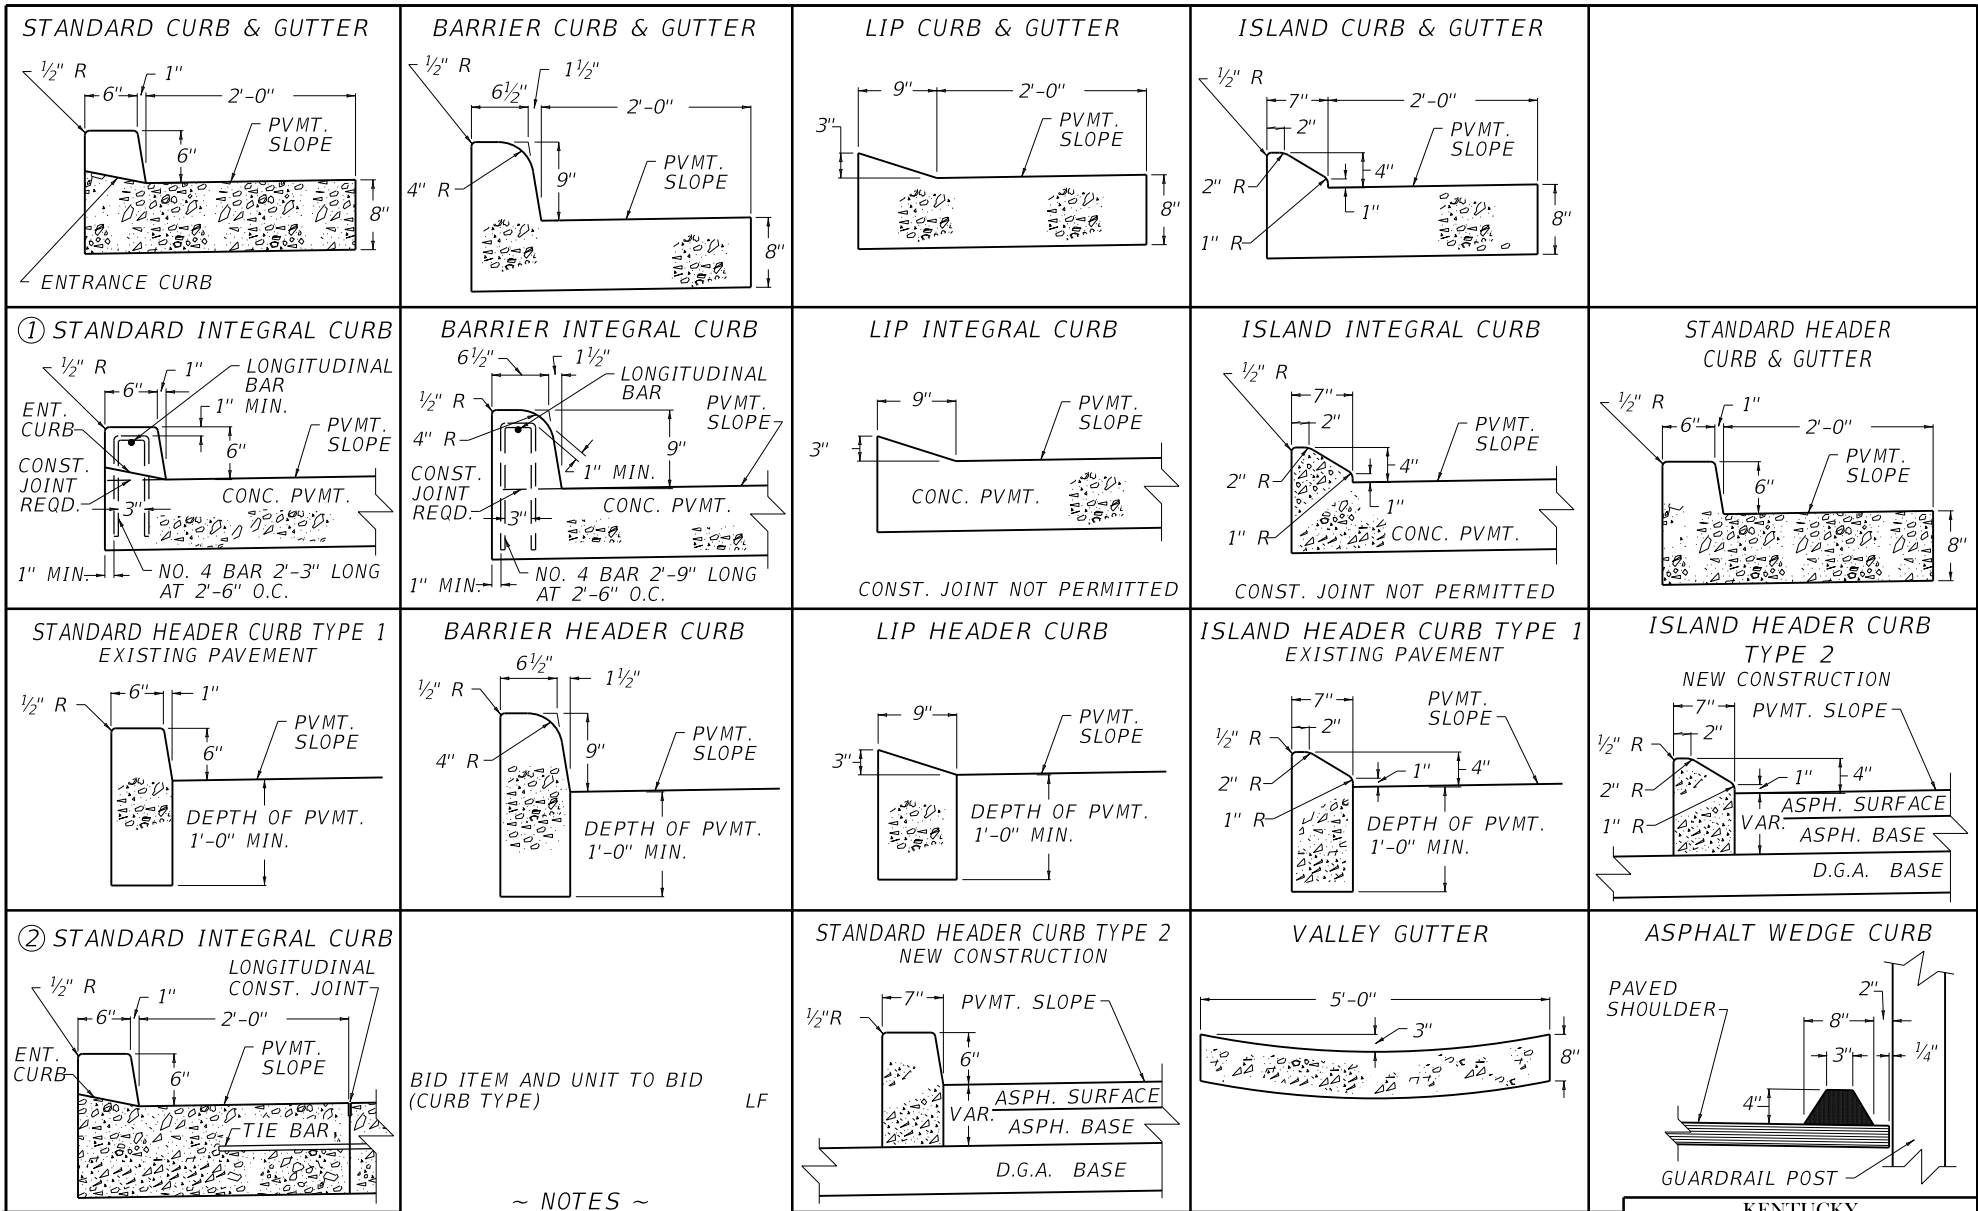 STANDARD CURB & GUTTER
½" R
1"
6"
2'-0"
PVMT.
SLOPE
6"
8"
ENTRANCE CURB
BARRIER CURB & GUTTER
½" R
1½"
6½"
2'-0"
PVMT.
SLOPE
4" R
9"
8"
LIP CURB & GUTTER
9"
2'-0"
3"
PVMT.
SLOPE
8"
ISLAND CURB & GUTTER
½" R
7"
2'-0"
2"
PVMT.
SLOPE
4"
2" R
1"
1" R
8"
① STANDARD INTEGRAL CURB
½" R
1"
LONGITUDINAL
BAR
6"
1" MIN.
ENT.
CURB
PVMT.
SLOPE
6"
CONST.
JOINT
REQD.
CONC. PVMT.
3"
1" MIN.
NO. 4 BAR 2'-3" LONG
AT 2'-6" O.C.
BARRIER INTEGRAL CURB
6½"
1½"
LONGITUDINAL
BAR
½" R
PVMT.
SLOPE
4" R
9"
1" MIN.
CONST.
JOINT
REQD.
CONC. PVMT.
3"
1" MIN.
NO. 4 BAR 2'-9" LONG
AT 2'-6" O.C.
LIP INTEGRAL CURB
9"
PVMT.
SLOPE
3"
CONC. PVMT.
CONST. JOINT NOT PERMITTED
ISLAND INTEGRAL CURB
½" R
7"
2"
PVMT.
SLOPE
4"
2" R
1"
1" R
CONC. PVMT.
CONST. JOINT NOT PERMITTED
STANDARD HEADER
CURB & GUTTER
½" R
1"
6"
2'-0"
PVMT.
SLOPE
6"
8"
STANDARD HEADER CURB TYPE 1
EXISTING PAVEMENT
6"
1"
½" R
PVMT.
SLOPE
6"
DEPTH OF PVMT.
1'-0" MIN.
BARRIER HEADER CURB
6½"
1½"
½" R
PVMT.
SLOPE
4" R
9"
DEPTH OF PVMT.
1'-0" MIN.
LIP HEADER CURB
9"
PVMT.
SLOPE
3"
DEPTH OF PVMT.
1'-0" MIN.
ISLAND HEADER CURB TYPE 1
EXISTING PAVEMENT
7"
PVMT.
SLOPE
2"
½" R
1"
4"
2" R
1" R
DEPTH OF PVMT.
1'-0" MIN.
ISLAND HEADER CURB
TYPE 2
NEW CONSTRUCTION
7"
PVMT. SLOPE
2"
½" R
1"
4"
2" R
ASPH. SURFACE
1" R
VAR.
ASPH. BASE
D.G.A. BASE
② STANDARD INTEGRAL CURB
LONGITUDINAL
CONST. JOINT
½" R
1"
6"
2'-0"
PVMT.
SLOPE
ENT.
CURB
6"
TIE BAR
BID ITEM AND UNIT TO BID
(CURB TYPE) LF
~ NOTES ~
STANDARD HEADER CURB TYPE 2
NEW CONSTRUCTION
7"
PVMT. SLOPE
½"R
6"
ASPH. SURFACE
VAR.
ASPH. BASE
D.G.A. BASE
VALLEY GUTTER
5'-0"
3"
8"
ASPHALT WEDGE CURB
PAVED
SHOULDER
2"
8"
3"
¼"
4"
GUARDRAIL POST
KENTUCKY